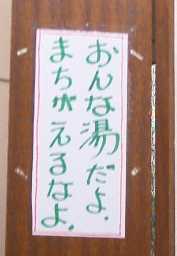 おんな湯だよ.
まちがえるなよ.